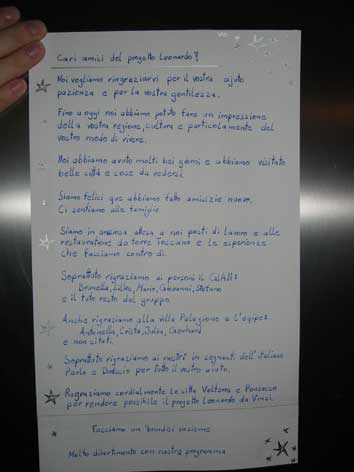 Cari amici del progetto Leonardo!
Noi vogliamo ringraziarvi per il vostro aiuto
pazienza e per la vostra gentilezza.
Fino a oggi noi abbiamo potuto fare un impressione
della vostra regione, cultura e particolamente del
vostro modo di vivere.
Noi abbiamo avuto molti bei giorni e abbiamo visitato
belle città e cose da vedersi.
Siamo felici que abbiamo fatto amicizie nuove.
Ci sentiamo alle famiglie
Siamo in ansiosa attesa a noi posti di lavoro e alle
restauratione da torre Toscano e le esperienze
che facciamo contro di.
Soprattuto rigraziamo ai personi il
Brinella, Silke, Mario, Giovanni, Stefano
e il tuto resto del gruppo
Anche rigraziamo alla villa Palagione e l'equipe
Antonella, Crista, Julia, Gerhard
e non citati.
Soprattuto rigraziamo ai nostri in segnanti dell'italiano
Paola e Duccio per tutto il vostro aiuto.
Rigraziamo cordialmente le citta Volterra e Ponsacco
per rendere possibile il progetto Leonardo da Vinci.
Facciamo un brindisi insieme
Molto divertimento con nostro programma